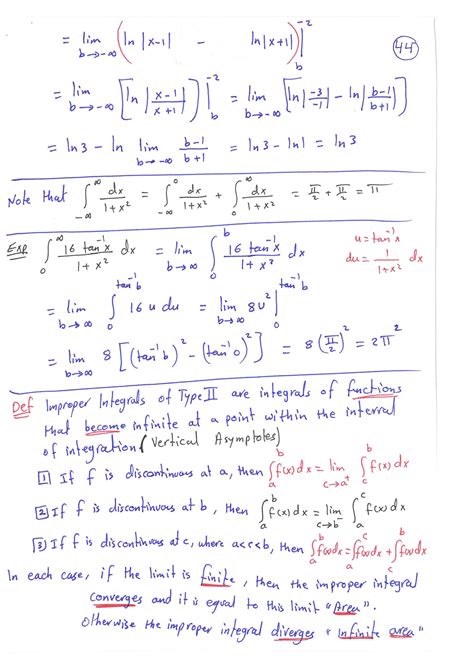 = lim b→-∞ (ln |x-1| - ln |x+1|) |_b^-2
44
= lim b→-∞ [ln |x-1/x+1|] |_b^-2 = lim b→-∞ [ln |-3/-1| - ln |b-1/b+1|]
= ln 3 - ln lim b→-∞ b-1/b+1 = ln 3 - ln 1 = ln 3
Note that ∫_-∞^∞ dx/1+x² = ∫_-∞^0 dx/1+x² + ∫_0^∞ dx/1+x² = π/2 + π/2 = π
Exp ∫_0^∞ 16 tan⁻¹x/1+x² dx = lim b→∞ ∫_0^b 16 tan⁻¹x/1+x² dx
u = tan⁻¹x
du = 1/1+x² dx
= lim b→∞ ∫_0^tan⁻¹b 16 u du = lim b→∞ 8u² |_0^tan⁻¹b
= lim b→∞ 8 [(tan⁻¹b)² - (tan⁻¹0)²] = 8 (π/2)² = 2π²
Def Improper Integrals of Type II are integrals of functions
that become infinite at a point within the interval
of integration (Vertical Asymptotes)
1 If f is discontinuous at a, then ∫_a^b f(x) dx = lim c→a⁺ ∫_c^b f(x) dx
2 If f is discontinuous at b, then ∫_a^b f(x) dx = lim c→b⁻ ∫_a^c f(x) dx
3 If f is discontinuous at c, where a<c<b, then ∫_a^b f(x)dx = ∫_a^c f(x)dx + ∫_c^b f(x)dx
In each case, if the limit is finite, then the improper integral
converges and it is equal to this limit "Area".
Otherwise the improper integral diverges "Infinite area"